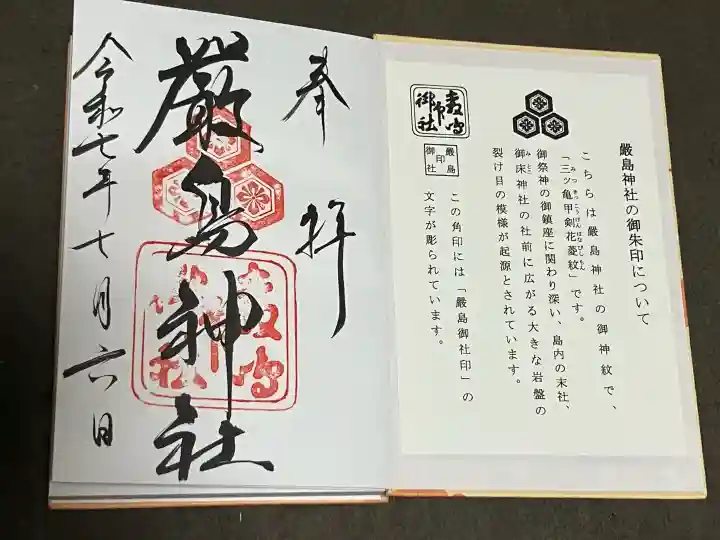 厳島神社の御朱印について
こちらは厳島神社の御神紋で、
「三ッ亀甲剣花菱紋」です。
みつきっこうけんはなびしもん
御祭神の御鎮座に関わり深い、島内の末社、
御床神社の社前に広がる大きな岩盤の
みとこ
裂け目の模様が起源とされています。
この角印には「嚴島御社印」の
文字が彫られています。
嚴島
印
御社
奉拝
嚴島神社
令和七年十月六日